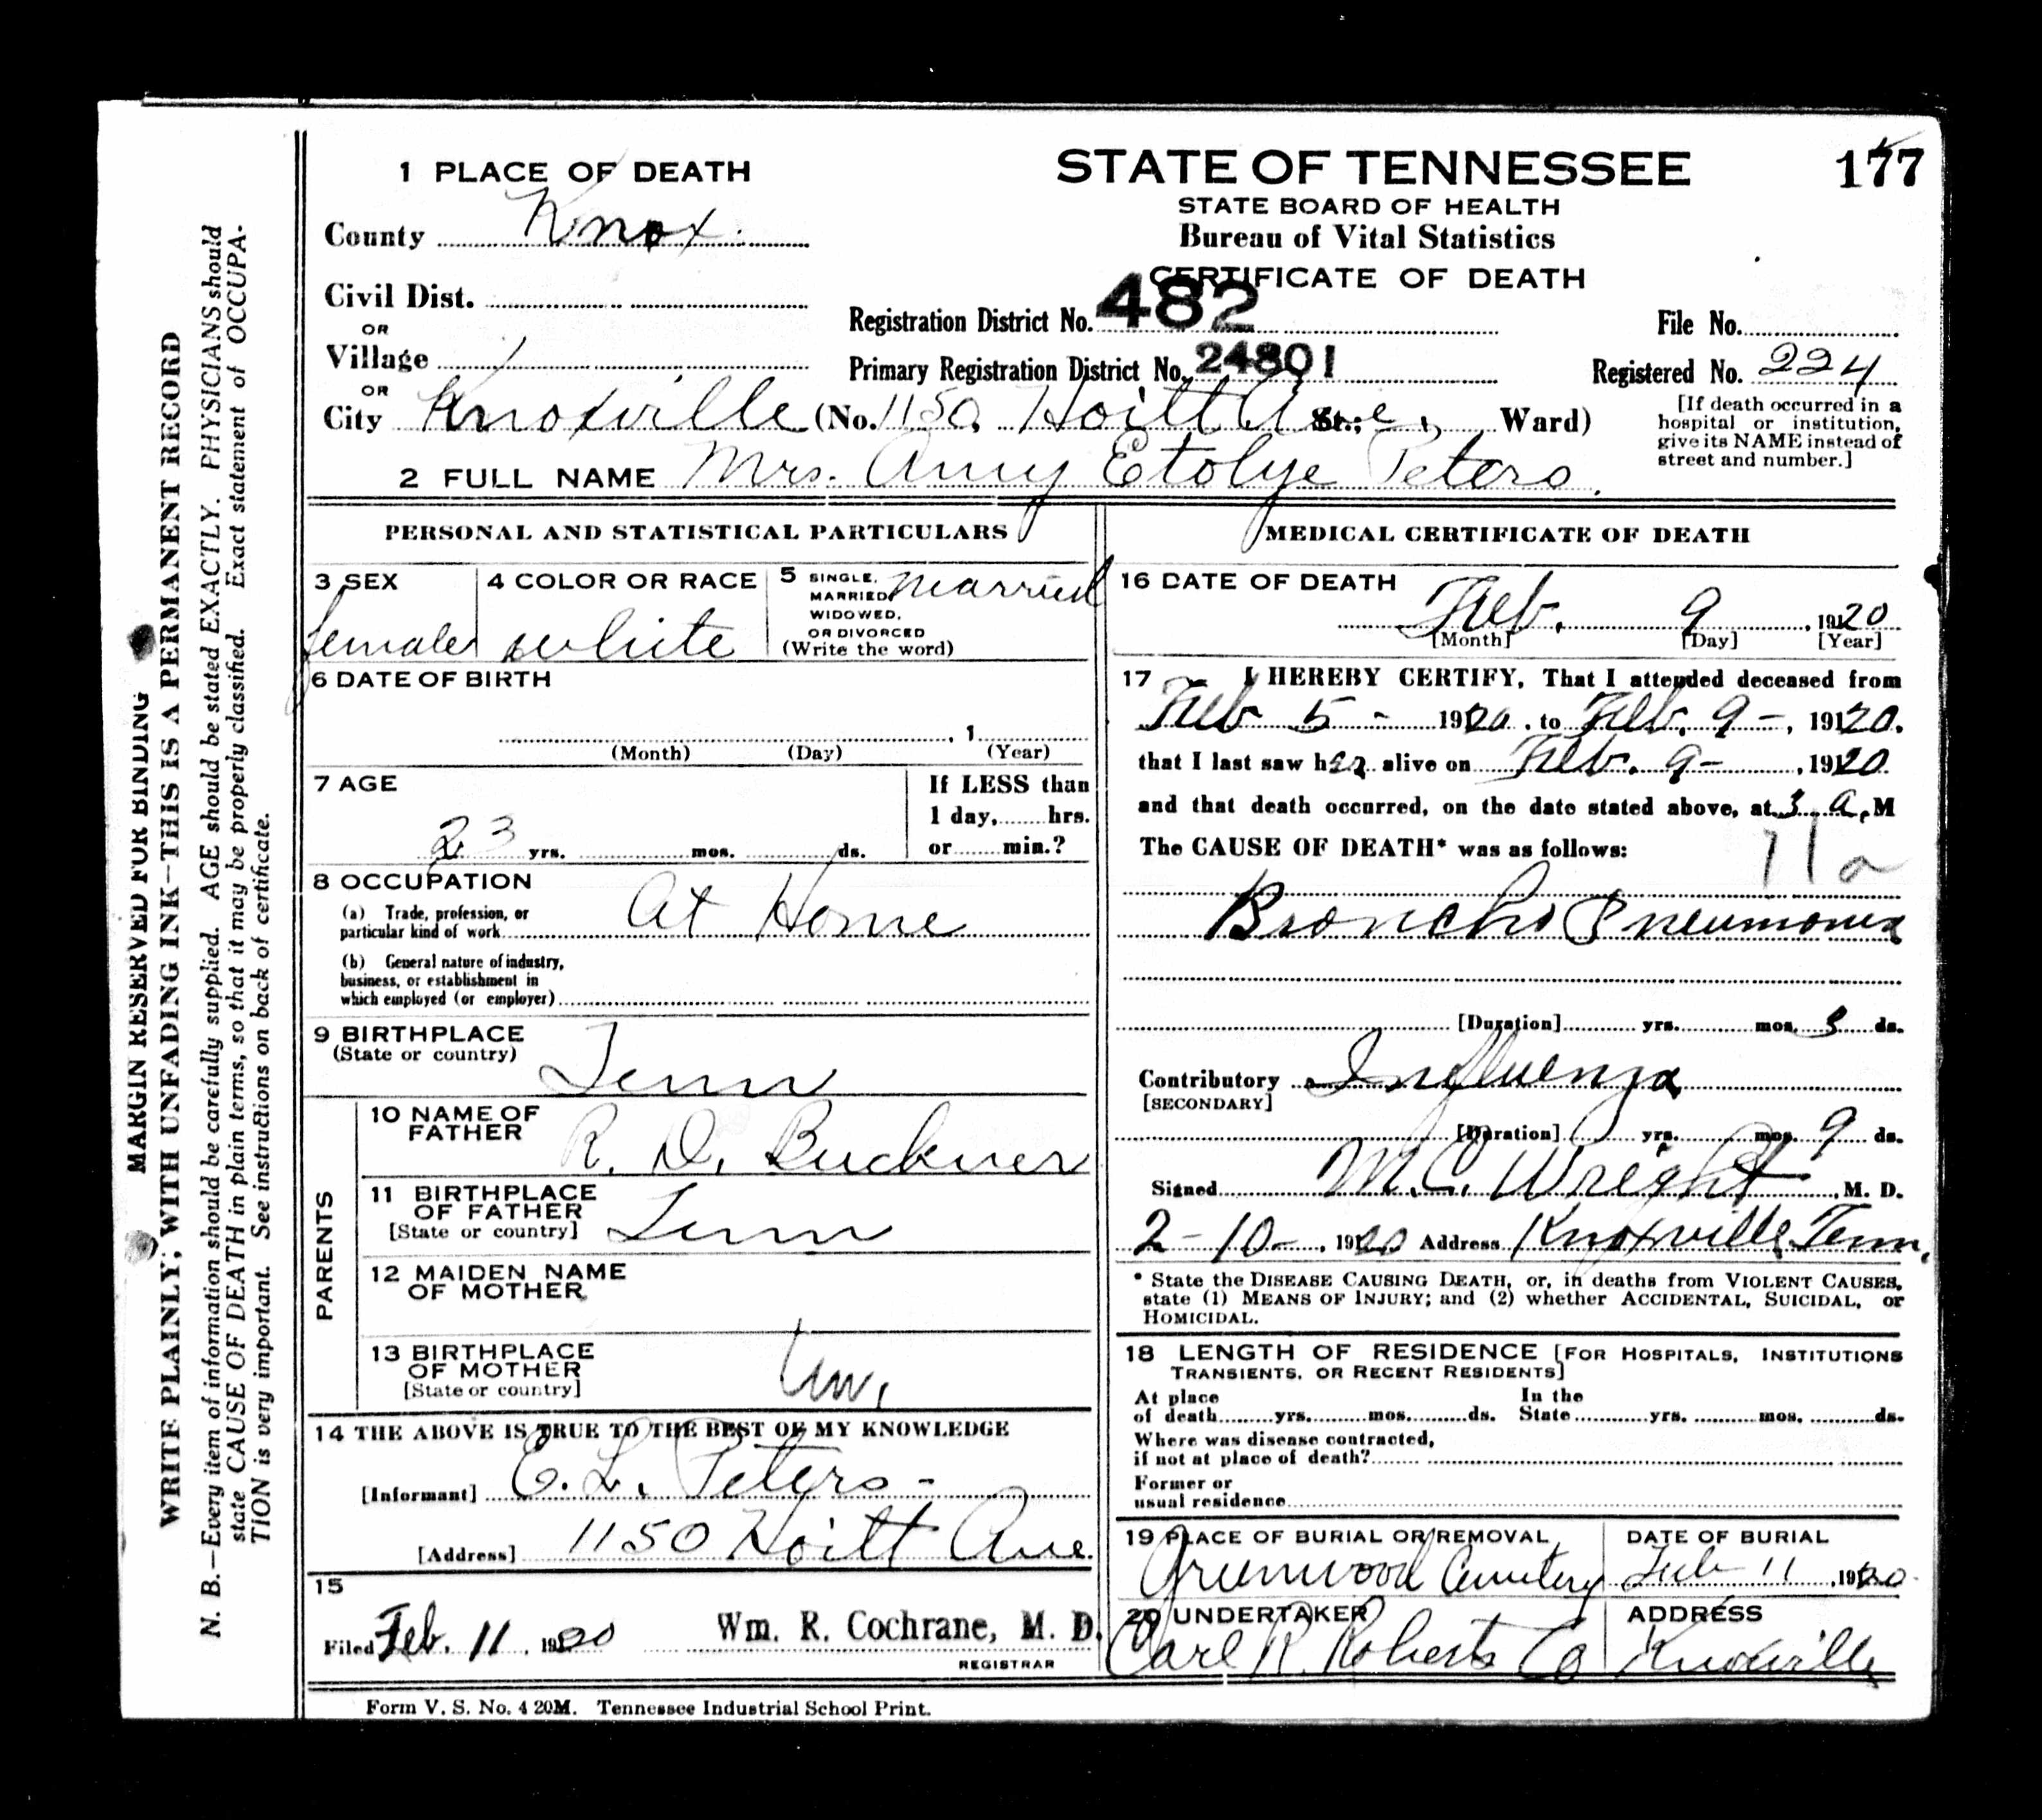 177
1 PLACE OF DEATH
STATE OF TENNESSEE
STATE BOARD OF HEALTH
Bureau of Vital Statistics
CERTIFICATE OF DEATH
County Knox.
Civil Dist.
OR
Village
OR
City Knoxville (No. 1150, Hoitt Ave St.; Ward)
Registration District No. 482
Primary Registration District No. 24801
File No.
Registered No. 224
[If death occurred in a
hospital or institution,
give its NAME instead of
street and number.]
2 FULL NAME Mrs. Amy Etolye Peters.
PERSONAL AND STATISTICAL PARTICULARS
3 SEX
female
4 COLOR OR RACE
white
5 SINGLE,
MARRIED,
WIDOWED,
OR DIVORCED
(Write the word)
married
6 DATE OF BIRTH
, 1
(Month) (Day) (Year)
7 AGE
23 yrs. mos. ds.
If LESS than
1 day, hrs.
or min.?
8 OCCUPATION
(a) Trade, profession, or
particular kind of work At Home
(b) General nature of industry,
business, or establishment in
which employed (or employer)
9 BIRTHPLACE
(State or country) Tenn
PARENTS
10 NAME OF
FATHER R. D. Buckner
11 BIRTHPLACE
OF FATHER
[State or country] Tenn
12 MAIDEN NAME
OF MOTHER
13 BIRTHPLACE
OF MOTHER
[State or country]
14 THE ABOVE IS TRUE TO THE BEST OF MY KNOWLEDGE
[Informant] E. L. Peters -
[Address] 1150 Hoitt Ave.
15
Filed Feb. 11, 1920 Wm. R. Cochrane, M. D.
REGISTRAR
MEDICAL CERTIFICATE OF DEATH
16 DATE OF DEATH
Feb. 9, 1920
[Month] [Day] [Year]
17 I HEREBY CERTIFY, That I attended deceased from
Feb 5 - 1920, to Feb. 9 -, 1920.
that I last saw her alive on Feb. 9 -, 1920
and that death occurred, on the date stated above, at 3 a, M
The CAUSE OF DEATH* was as follows:
11a
Broncho Pneumonia
[Duration] yrs. mos. 3 ds.
Contributory Influenza
[SECONDARY]
[Duration] yrs. mos. 9 ds.
Signed M. C. Wright, M. D.
2-10-, 1920 Address Knoxville, Tenn.
* State the DISEASE CAUSING DEATH, or, in deaths from VIOLENT CAUSES,
state (1) MEANS OF INJURY; and (2) whether ACCIDENTAL, SUICIDAL, or
HOMICIDAL.
18 LENGTH OF RESIDENCE [FOR HOSPITALS, INSTITUTIONS
TRANSIENTS, OR RECENT RESIDENTS]
At place
of death yrs. mos. ds.
In the
State yrs. mos. ds.
Where was disease contracted,
if not at place of death?
Former or
usual residence
19 PLACE OF BURIAL OR REMOVAL
Greenwood Cemetery
DATE OF BURIAL
Feb 11, 1920
20 UNDERTAKER
Carl R. Roberts Co
ADDRESS
Knoxville
Form V. S. No. 4 20M. Tennessee Industrial School Print.
MARGIN RESERVED FOR BINDING
WRITE PLAINLY, WITH UNFADING INK—THIS IS A PERMANENT RECORD
N. B.—Every item of information should be carefully supplied. AGE should be stated EXACTLY. PHYSICIANS should
state CAUSE OF DEATH in plain terms, so that it may be properly classified. Exact statement of OCCUPA-
TION is very important. See instructions on back of certificate.